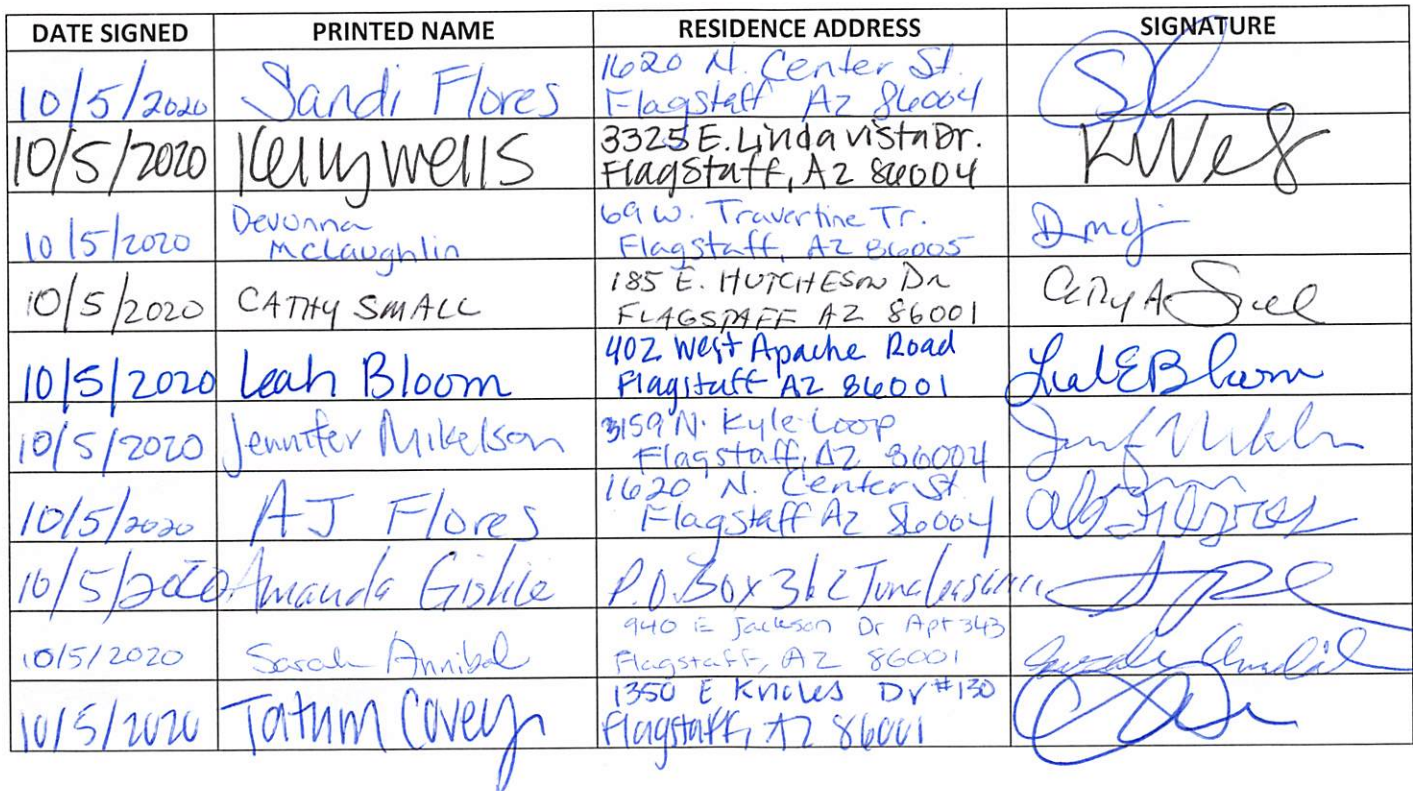 DATE SIGNED PRINTED NAME RESIDENCE ADDRESS SIGNATURE
10/5/2020 Sandi Flores 1620 N. Center St.
Flagstaff AZ 86004
10/5/2020 Kelly Wells 3325 E. Linda Vista Dr.
Flagstaff, AZ 86004
10/5/2020 Devonna
McLaughlin 69 W. Travertine Tr.
Flagstaff, AZ 86005
10/5/2020 CATHY SMALL 185 E. HUTCHESON DR
FLAGSTAFF AZ 86001 Cathy A
10/5/2020 Leah Bloom 402 West Apache Road
Flagstaff AZ 86001 Leah E Bloom
10/5/2020 Jennifer Mikelson 3159 N. Kyle Loop
Flagstaff, AZ 86004
10/5/2020 AJ Flores 1620 N. Center St.
Flagstaff AZ 86004
10/5/2020 Amanda P.O. Box 362
10/5/2020 Sarah Annibal 940 E Jackson Dr Apt 343
Flagstaff, AZ 86001
10/5/2020 Tatum Covey 1350 E Knoles Dr #130
Flagstaff, AZ 86001